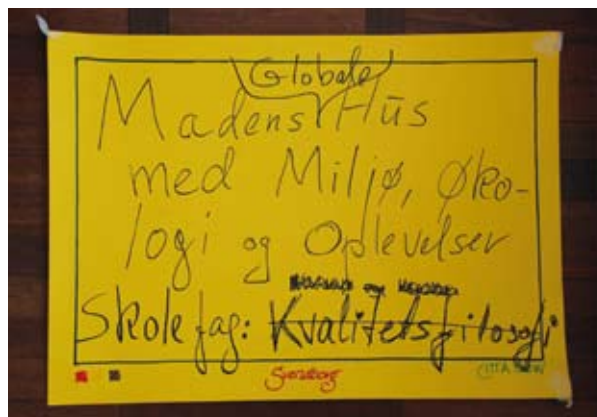 Globale
Madens Hus
med Miljø, Øko-
logi og Oplevelser
Skolefag: Kvalitetsfilosofi
Svendborg